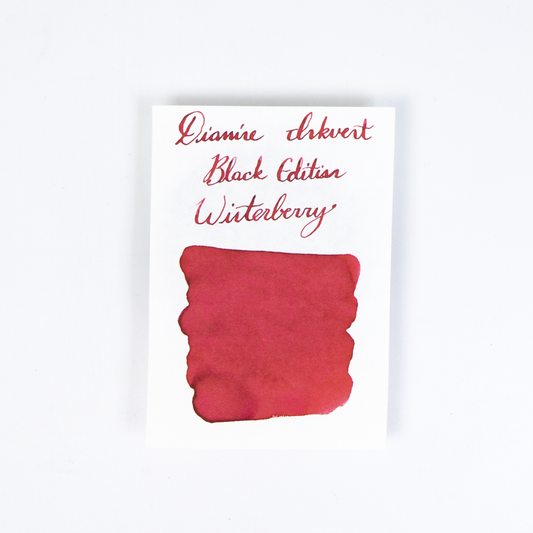 Diamine Inkvent
Black Edition
Winterberry